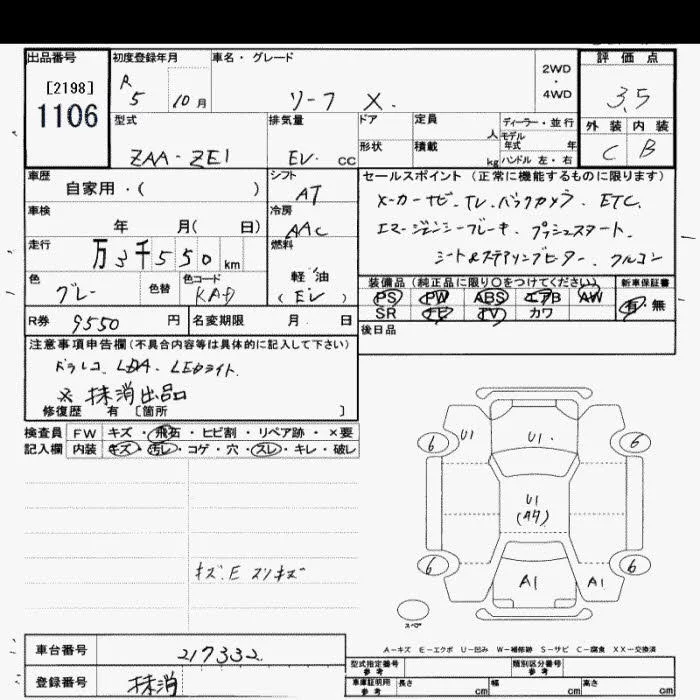 出品番号 初度登録年月 車名・グレード 評価点
[2198] R 5 10月 リーフ X. 2WD・4WD 3.5
1106
型式 排気量 ドア 定員 人 ディーラー・並行 外装 内装
ZAA-ZE1 EV. cc 形状 積載 kg モデル年式 年 C B
ハンドル 左・右
車歴 シフト セールスポイント(正常に機能するものに限ります)
自家用・( ) AT メーカーナビ. TV. バックカメラ. ETC.
車検 冷房 エマージェンシーブレーキ. プッシュスタート.
年 月( 日) AAC シート&ステアリングヒーター. クルコン
走行 万3千550km 燃料
軽・油
(EV)
色 色替 色コード 装備品(純正品に限り○をつけてください) 新車保証書
グレー KAD PS PW ABS エアB AW 有・無
SR ナビ TV カワ
R券 9550円 名変期限 月 日 後日品
注意事項申告欄(不具合内容等は具体的に記入して下さい)
ドラレコ. LDA. LEDライト.
※抹消出品
修復歴 有 [箇所 ]
検査員 FW キズ・飛石・ヒビ割・リペア跡・×要
記入欄 内装 キズ・汚レ・コゲ・穴・スレ・キレ・破レ
6 U1 U1. 6
U1
(A4)
キズ.E スリキズ
6 A1 A1 6
スペア
A-キズ E-エクボ U-凹み W-補修跡 S-サビ C-腐食 XX-交換済
車台番号 217332
型式指定番号 参考 類別区分番号 参考
登録番号 抹消
車庫証明用 参考 長さ cm 幅 cm 高さ cm